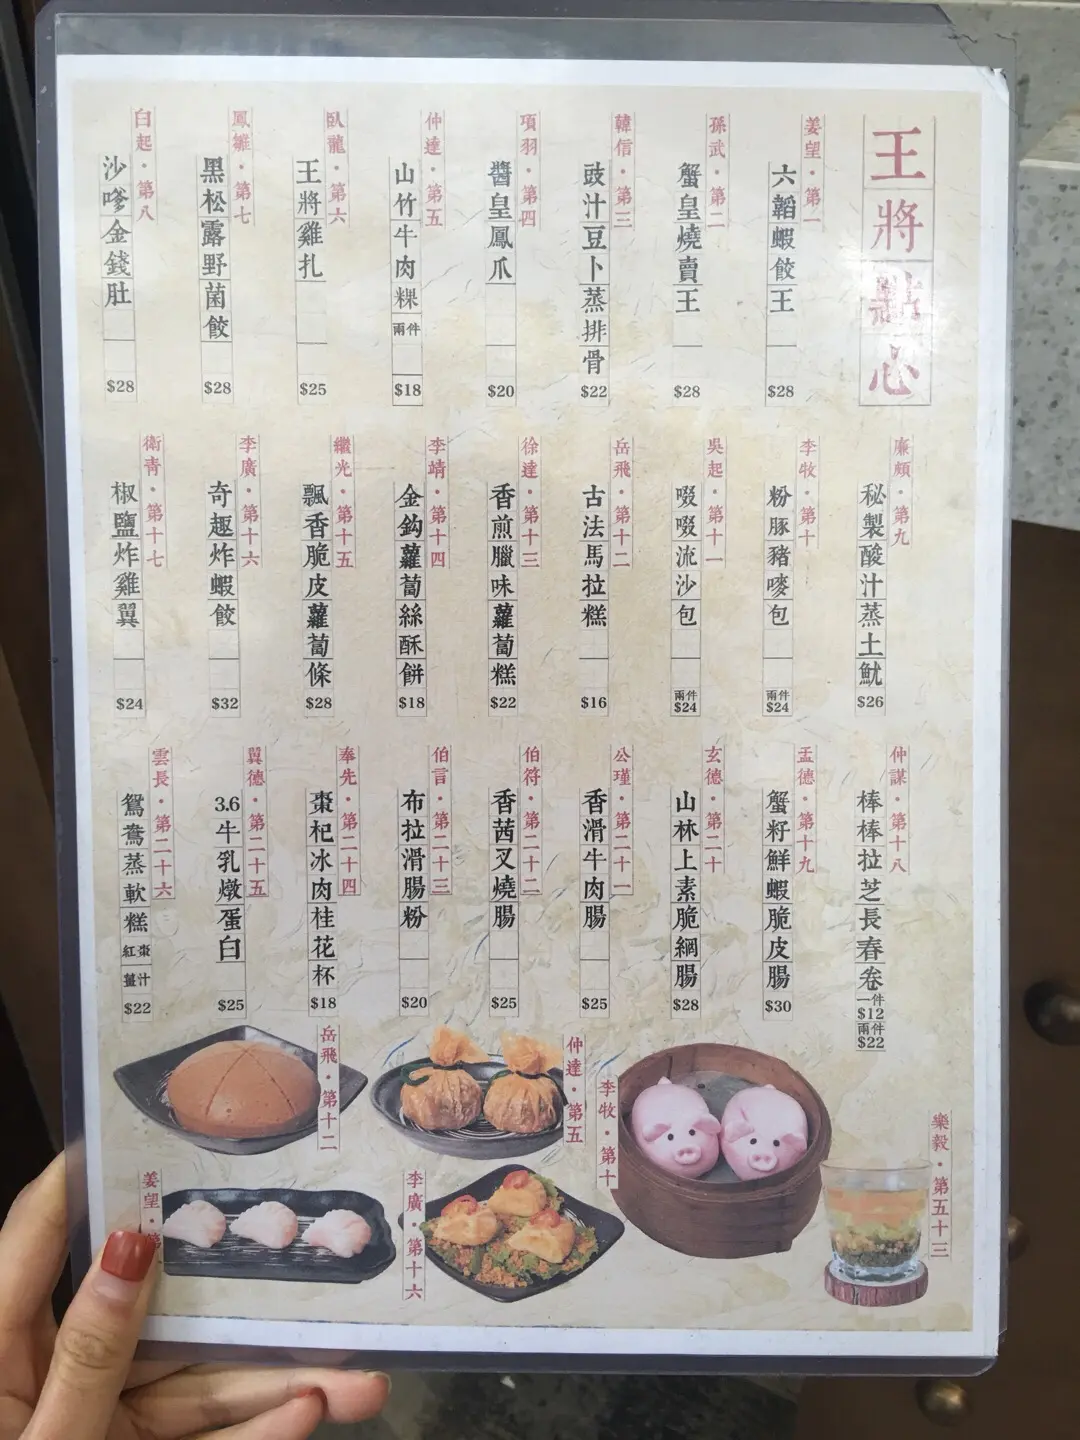 王將點心
姜望·第一
六韜蝦餃王
$28
孫武·第二
蟹皇燒賣王
$28
韓信·第三
豉汁豆卜蒸排骨
$22
項羽·第四
醬皇鳳爪
$20
仲達·第五
山竹牛肉粿
兩件
$18
臥龍·第六
王將雞扎
$25
鳳雛·第七
黑松露野菌餃
$28
白起·第八
沙嗲金錢肚
$28
廉頗·第九
秘製酸汁蒸土魷
$26
李牧·第十
粉豚豬嘜包
兩件
$24
吳起·第十一
啜啜流沙包
兩件
$24
岳飛·第十二
古法馬拉糕
$16
徐達·第十三
香煎臘味蘿蔔糕
$22
李靖·第十四
金鈎蘿蔔絲酥餅
$18
繼光·第十五
飄香脆皮蘿蔔條
$28
李廣·第十六
奇趣炸蝦餃
$32
衛青·第十七
椒鹽炸雞翼
$24
仲謀·第十八
棒棒拉芝長春卷
一件
$12
兩件
$22
孟德·第十九
蟹籽鮮蝦脆皮腸
$30
玄德·第二十
山林上素脆網腸
$28
公瑾·第二十一
香滑牛肉腸
$25
伯符·第二十二
香茜叉燒腸
$25
伯言·第二十三
布拉滑腸粉
$20
奉先·第二十四
棗杞冰肉桂花杯
$18
翼德·第二十五
3.6牛乳燉蛋白
$25
雲長·第二十六
鴛鴦蒸軟糕
紅棗
薑汁
$22
岳飛·第十二
仲達·第五
李牧·第十
樂毅·第五十三
姜望·第
李廣·第十六